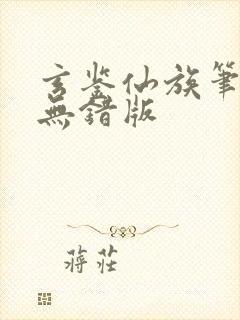 玄鉴仙族筆
無錯版
蔣莊